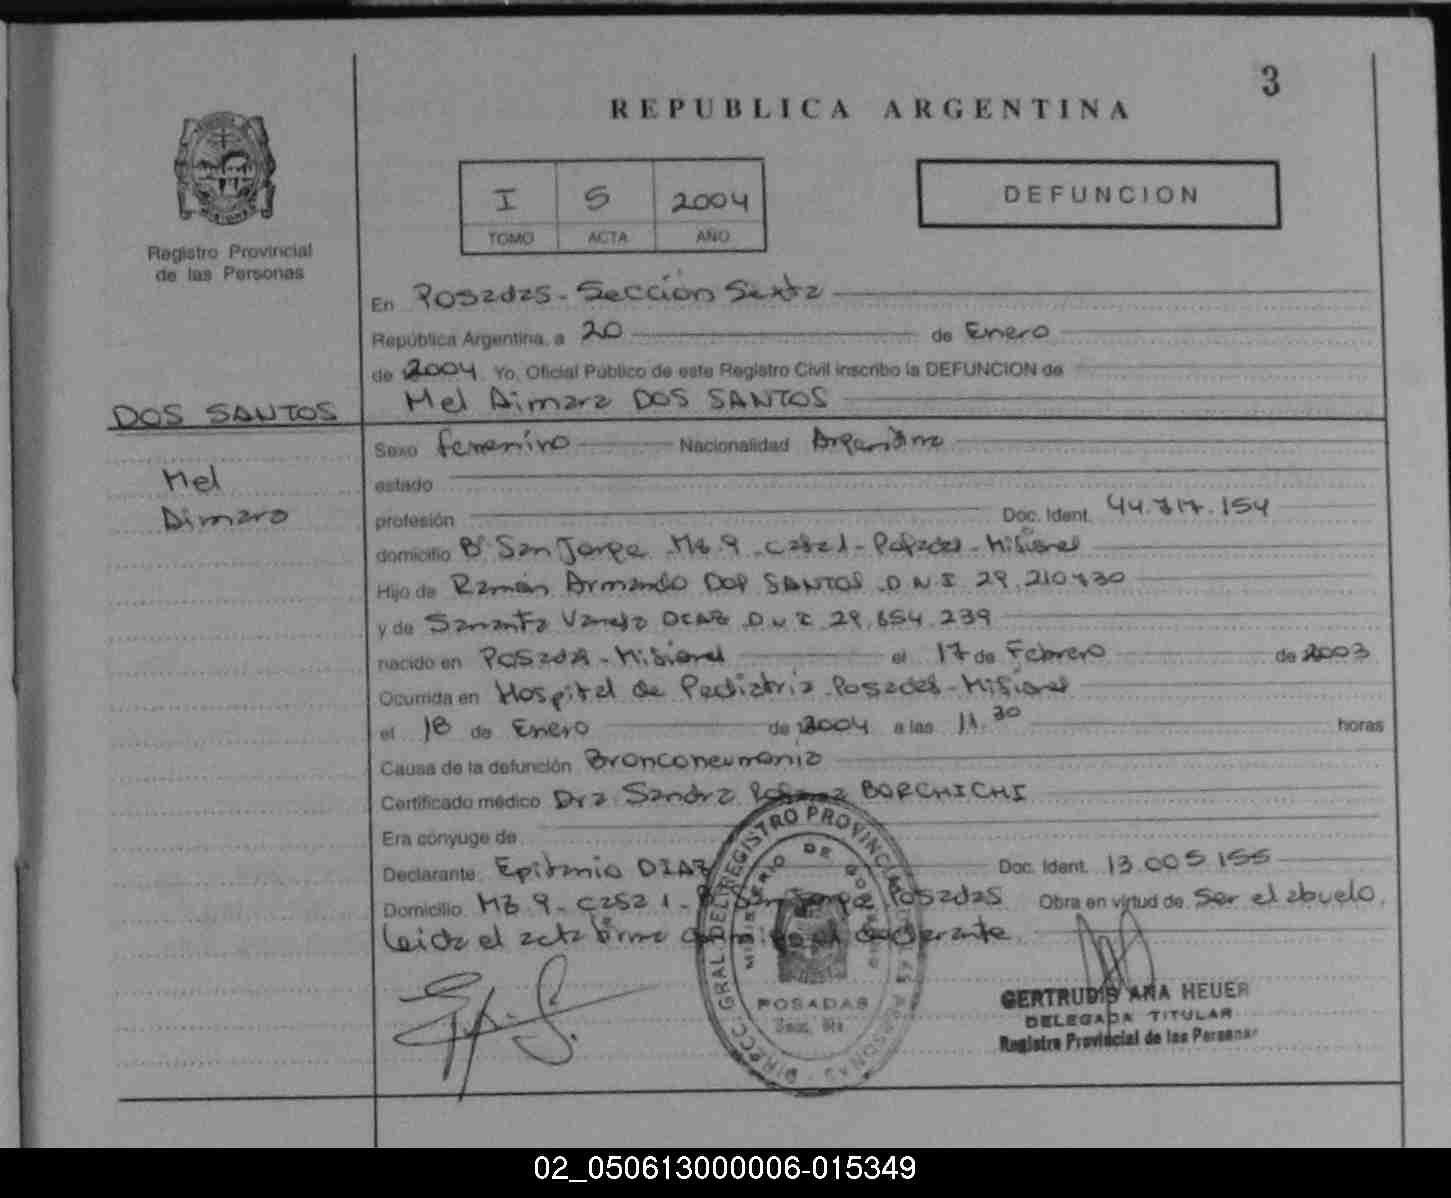 3
REPUBLICA ARGENTINA
I 5 2004
TOMO ACTA AÑO
DEFUNCION
Registro Provincial
de las Personas
En Posadas - Sección Sexta
República Argentina, a 20 de Enero
de 2004 Yo, Oficial Público de este Registro Civil inscribo la DEFUNCION de
Mel Aimara DOS SANTOS
DOS SANTOS
Mel
Aimara
Sexo femenino Nacionalidad Argentina
estado
profesión Doc. Ident. 44.717.154
domicilio Bº San Jorge Mz 9 - casa 1 - Posadas - Misiones
Hijo de Ramón Armando DOS SANTOS D.N.I 29.210.730
y de Samanta Vanesa D.N.I 29.654.239
nacido en Posadas - Misiones el 17 de Febrero de 2003
Ocurrida en Hospital de Pediatría Posadas - Misiones
el 18 de Enero de 2004 a las 11.30 horas
Causa de la defunción Bronconeumonia
Certificado médico Dra Sandra BORCHICHI
Era cónyuge de
Declarante Epitanio DIAZ Doc. Ident. 13.005.155
Domicilio Mz 9 - casa 1 - Bº San Jorge Posadas Obra en virtud de Ser el abuelo.
Leida el acta firma conmigo el declarante
DIRECC. GRAL. DEL REGISTRO PROVINCIAL DE LAS PERSONAS
MINISTERIO DE GOBIERNO
POSADAS
Secc. 6ta
GERTRUDIS ANA HEUER
DELEGADA TITULAR
Registro Provincial de las Personas
02_050613000006-015349